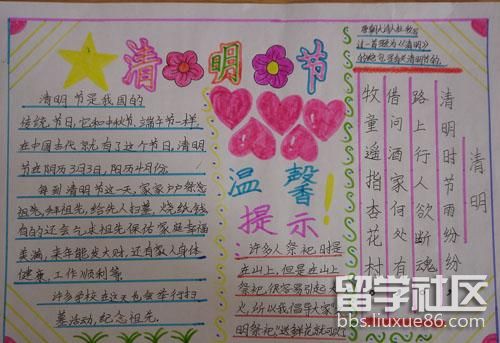 清明节
清明节是我国的
传统节日,它和中秋节、端午节一样
在中国古代就有了这个节日,清明
节在阴历3月3日,阳历4月份.
每到清明节这一天,家家户户祭念
祖先,拜祖先,给先人扫墓,烧纸钱,
有的还会乞求祖先保估家庭幸福
美满,来年能发大财,还有家人身体
健康,工作顺利等.
许多学校在这天也会举行扫
墓活动,纪念祖先.
温馨
提示!
许多人祭祀时是
在山上,但是在山上
祭祀,很容易引起火
义,所以我倡导大家
明祭祀"送鲜花就可以
清明
清明时节雨纷纷
路上行人欲断魂
借问酒家何处有
牧童遥指杏花村
留学社区
bbs.liuxue86.com